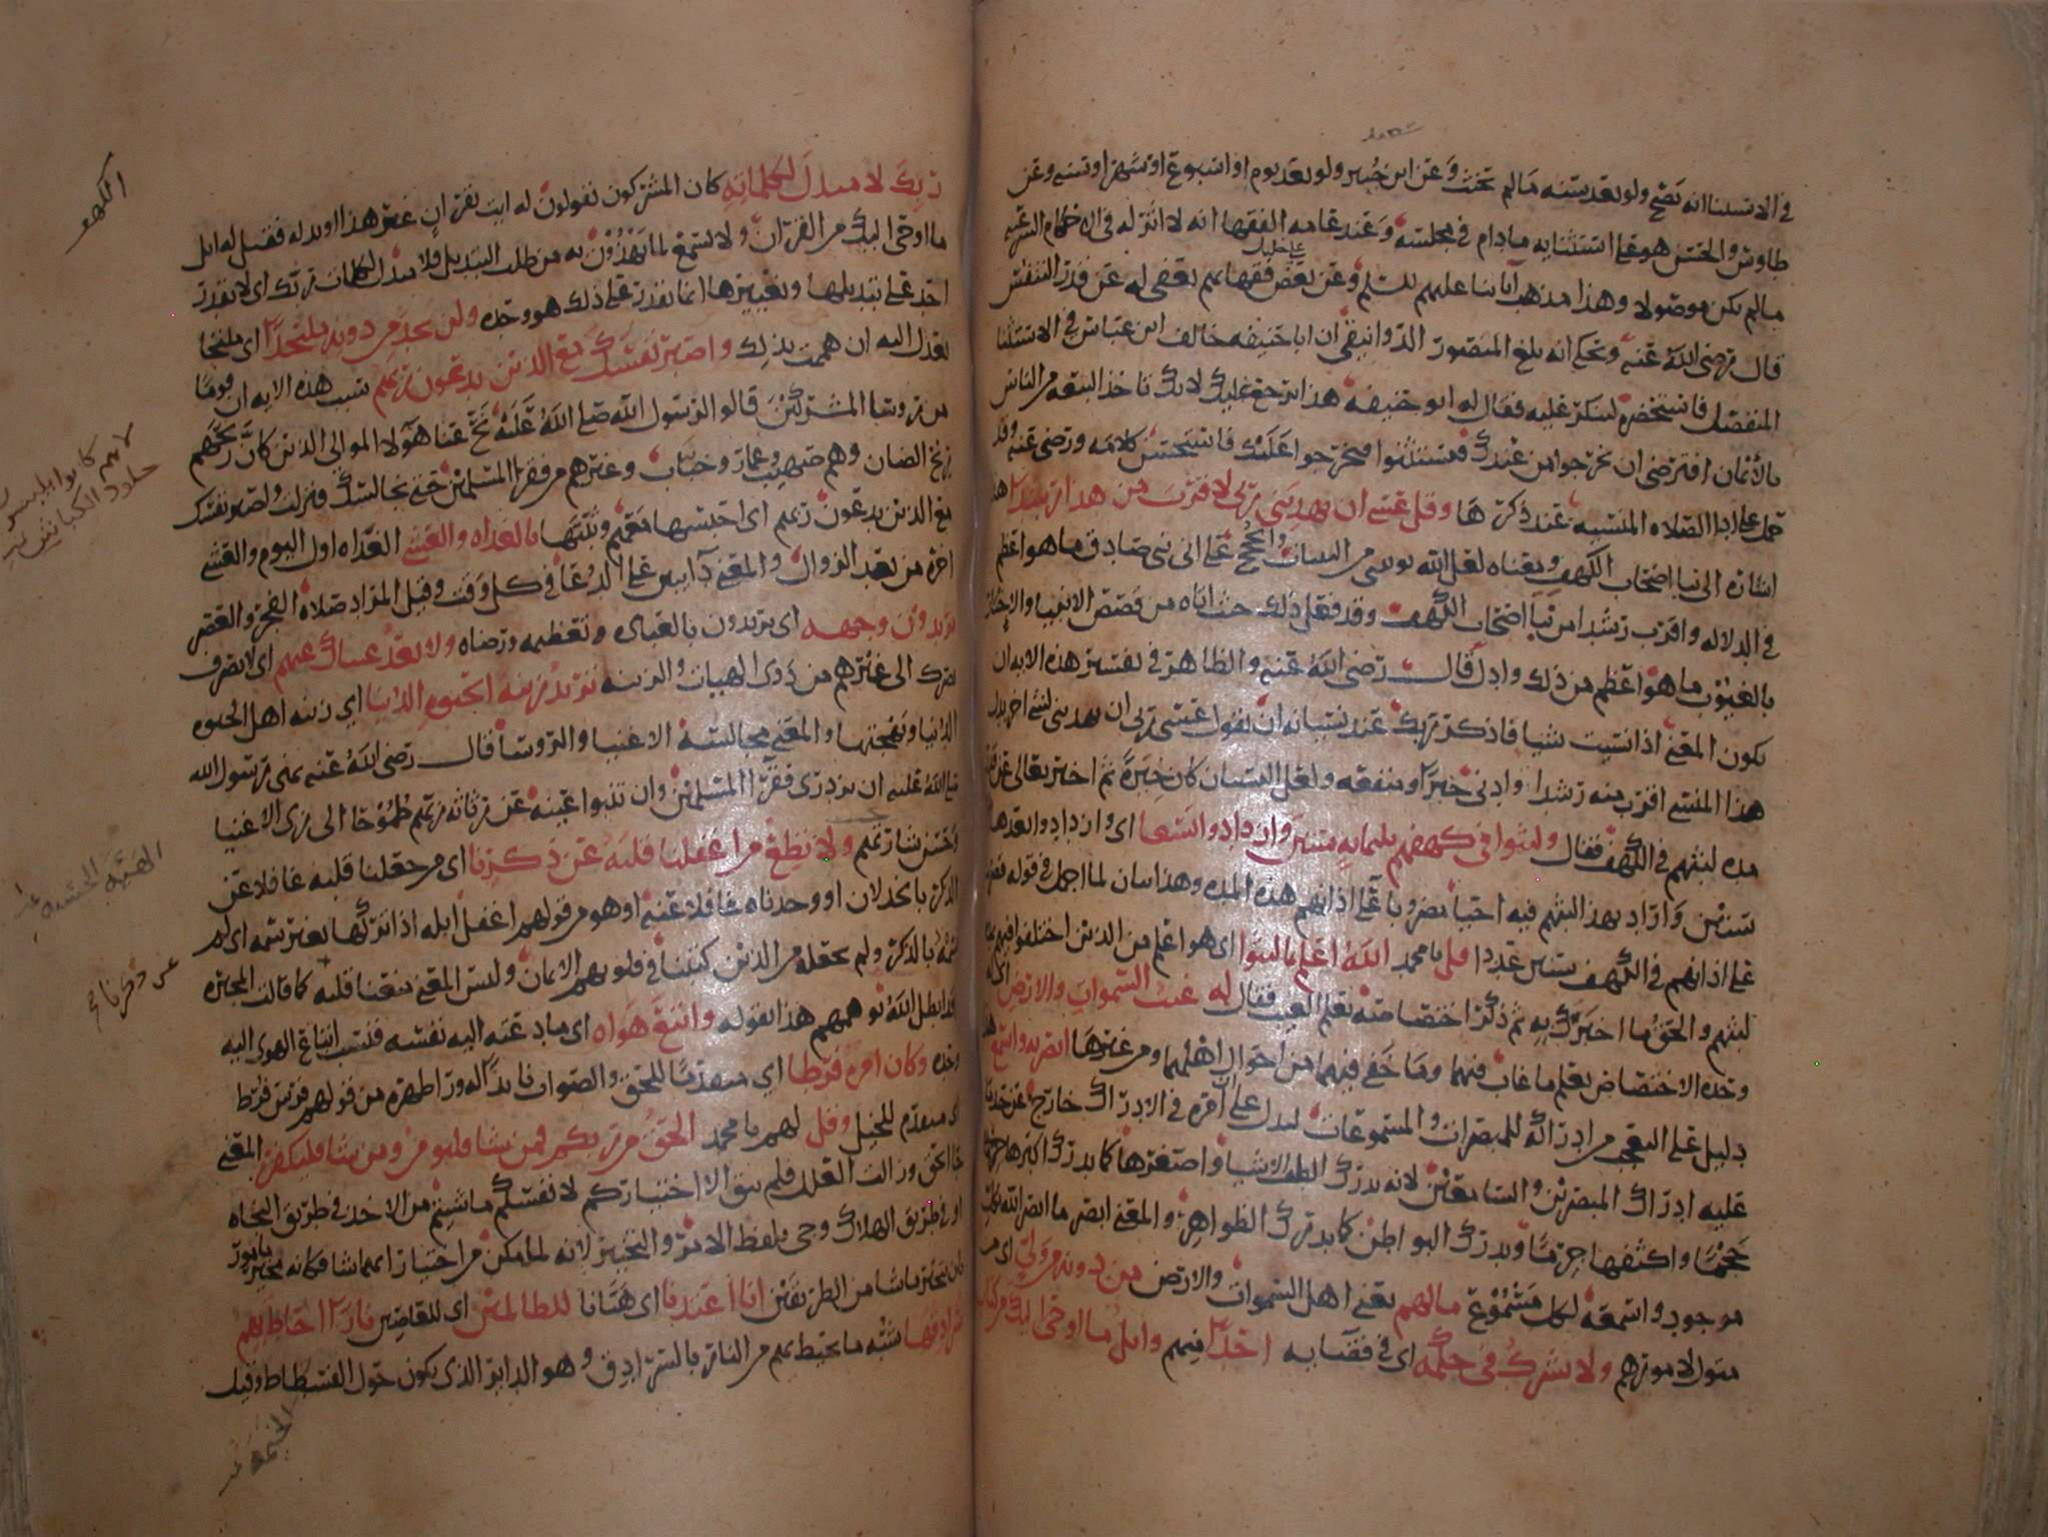 في الاستثنا انه يصح ولو بعد سنه مالم يحنث وعن ابن جبير ولو بعد يوم او اسبوع او شهر او سنه وعن
طاوس والحسن هو على استثنايه مادام في مجلسه وعند عامه الفقها انه لا اثر له في الاحكام الشرعيه
مالم يكن موصولا وهذا مذهب ابابنا عليهم السلم وعن بعض فقهايهم يعفى له عن قدر التنفس
قال رضي الله عنه وحكي انه بلغ المنصور الدوانيقي ان ابا حنيفه خالف ابن عباس في الاستثنا
المنفصل فاستحضره لينكر عليه فقال له ابو حنيفه هذا يرجع عليك لانك تاخذ البيعه من الناس
بالايمان افترضى ان يخرجوا من عندك فيستثنوا فيخرجوا عليك فاستحسن كلامه ورضي عنه وقد
حمل على ادا الصلاه المنسيه عند ذكرها وقل عسى ان يهديني ربي لاقرب من هذا رشدا هذا
اشاره الى نبا اصحاب الكهف ومعناه لعل الله يوتيني من البينات والحجج على اني نبي صادق ما هو اعظم
في الدلاله واقرب رشدا من نبا اصحاب الكهف وقد فعل ذلك حيث اتاه من قصص الانبيا والاخبار
بالغيوب ما هو اعظم من ذلك وادل قال رضي الله عنه والظاهر في تفسير هذه الايه ان
يكون المعنى اذا نسيت شيا فاذكر ربك عند نسيانه ان تقول عسى ربي ان يهديني لشي اخر بدل
هذا المنسي اقرب منه رشدا وادنى خيرا ومنفعه ولعل النسيان كان خيره ثم اخبر تعالى عن
مده لبثهم في الكهف فقال ولبثوا في كهفهم ثلثمايه سنين وازدادوا تسعا اي وازدادوا بعدها
على اذانهم في الكهف سنين عددا قل يا محمد الله اعلم بما لبثوا اي هو اعلم من الذين اختلفوا فيهم
لبثهم والحق ما اخبرك به ثم ذكر اختصاصه بعلم الغيب فقال له غيب السموات والارض
وحده الاختصاص بعلم ما غاب فيهما وما خفي فيهما من احوال اهلهما ومن غيرها ابصر به واسمع
دليل على التعجب من ادراكه للمبصرات والمسموعات ليدل على ان امره في الادراك خارج عن حد ما
عليه ادراك المبصرين والسامعين لانه يدرك الطف الاشيا واصغرها كما يدرك اكبرها
حجما واكثفها جرما ويدرك البواطن كما يدرك الظواهر والمعنى ابصر ما ابصر الله لكل
موجود واسمعه لكل مسموع مالهم يعني اهل السموات والارض من دونه من ولي اي من
متول لامورهم ولا يشرك في حكمه اي في قضايه احدا منهم واتل ما اوحي اليك من كتاب
ربك لا مبدل لكلماته كان المشركون يقولون له ايت بقران غير هذا او بدله فقيل له اتل
ما اوحي اليك من القران ولا تسمع لما يهذون به من طلب التبديل فلا مبدل لكلمات ربك اي لا يقدر
احد على تبديلها وتغييرها انما يقدر على ذلك هو وحده ولن تجد من دونه ملتحدا اي ملتجا
تعدل اليه ان هممت بذلك واصبر نفسك مع الذين يدعون ربهم سبب هذه الايه ان قوما
من روسا المشركين قالوا لرسول الله صلى الله عليه نح عنا هولا الموالي الذين كان ريحهم
ريح الضان وهم صهيب وعمار وخباب وغيرهم من فقرا المسلمين حتى نجالسك فنزلت واصبر نفسك
مع الذين يدعون ربهم اي احبسها معهم وثبتها بالغداه والعشي الغداه اول اليوم والعشي
اخره من بعد الزوال والمعنى دايبين على الدعا في كل وقت وقيل المراد صلاه الفجر والعصر
يريدون وجهه اي يريدون بالعباده وتعظيمه ورضاه ولا تعد عيناك عنهم اي لا تصرف
بصرك الى غيرهم من ذوي الهيات والزينه تريد زينه الحيوه الدنيا اي زينه اهل الحيوه
الدنيا وبهجتها والمعنى مجالسه الاغنيا والروسا قال رضي الله عنه نهي رسول الله
صلى الله عليه ان يزدري فقرا المسلمين وان تنبوا عينه عن رثاثه زيهم طموحا الى زي الاغنيا
وحسن شارتهم ولا تطع من اغفلنا قلبه عن ذكرنا اي من جعلنا قلبه غافلا عن
الذكر بالخذلان او وجدناه غافلا عنه او هو من قولهم اغفل ابله اذا تركها بغير سمه اي لم
نسمه بالذكر ولم نجعله من الذين كتبنا في قلوبهم الايمان وليس المعنى منعنا قلبه كما قالت المجبره
قد ابطل الله توهمهم هذا بقوله واتبع هواه اي ما دعته اليه نفسه فنسب اتباع الهوى اليه
وحده وكان امره فرطا اي متقدما للحق والصواب نابذا له ورا ظهره من قولهم فرس فرط
اي متقدم للخيل وقل لهم يا محمد الحق من ربكم فمن شا فليومن ومن شا فليكفر المعنى
جا الحق وزالت العلل فلم يبق الا اختياركم لانفسكم ما شيتم من الاخذ في طريق النجاه
او في طريق الهلاك وجي بلفظ الامر والتخيير لانه لما مكن من اختيار ايهما شا فكانه مخير مامور
بان يتخير ما شا من الطريقين انا اعتدنا اي هيانا للظالمين اي للعاصين نارا احاط بهم
سرادقها شبه ما يحيط بهم من النار بالسرادق وهو الداير الذي يكون حول الفسطاط وقيل
الكهف
لانهم كانوا يلبسون
جلود الكباش
الهيه الحسنه
عن ذكرنا